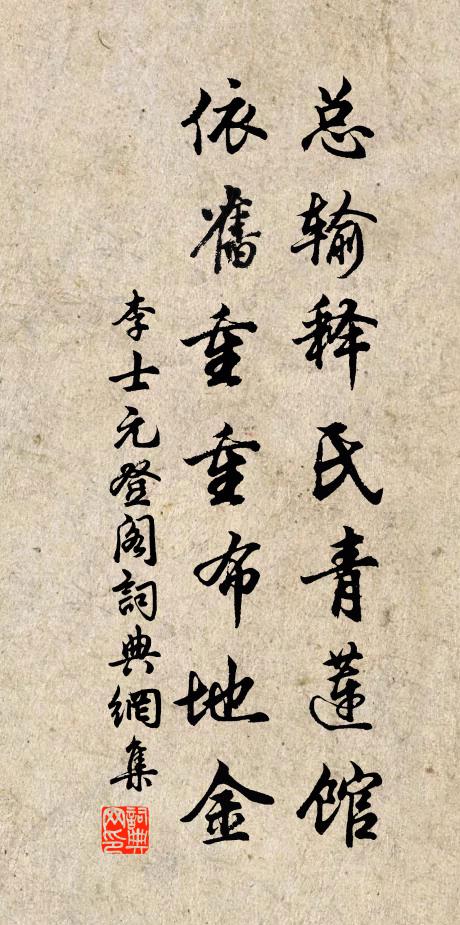 总输释氏青莲馆
依旧重重布地金
李士元登阁词典網集
詞典网印